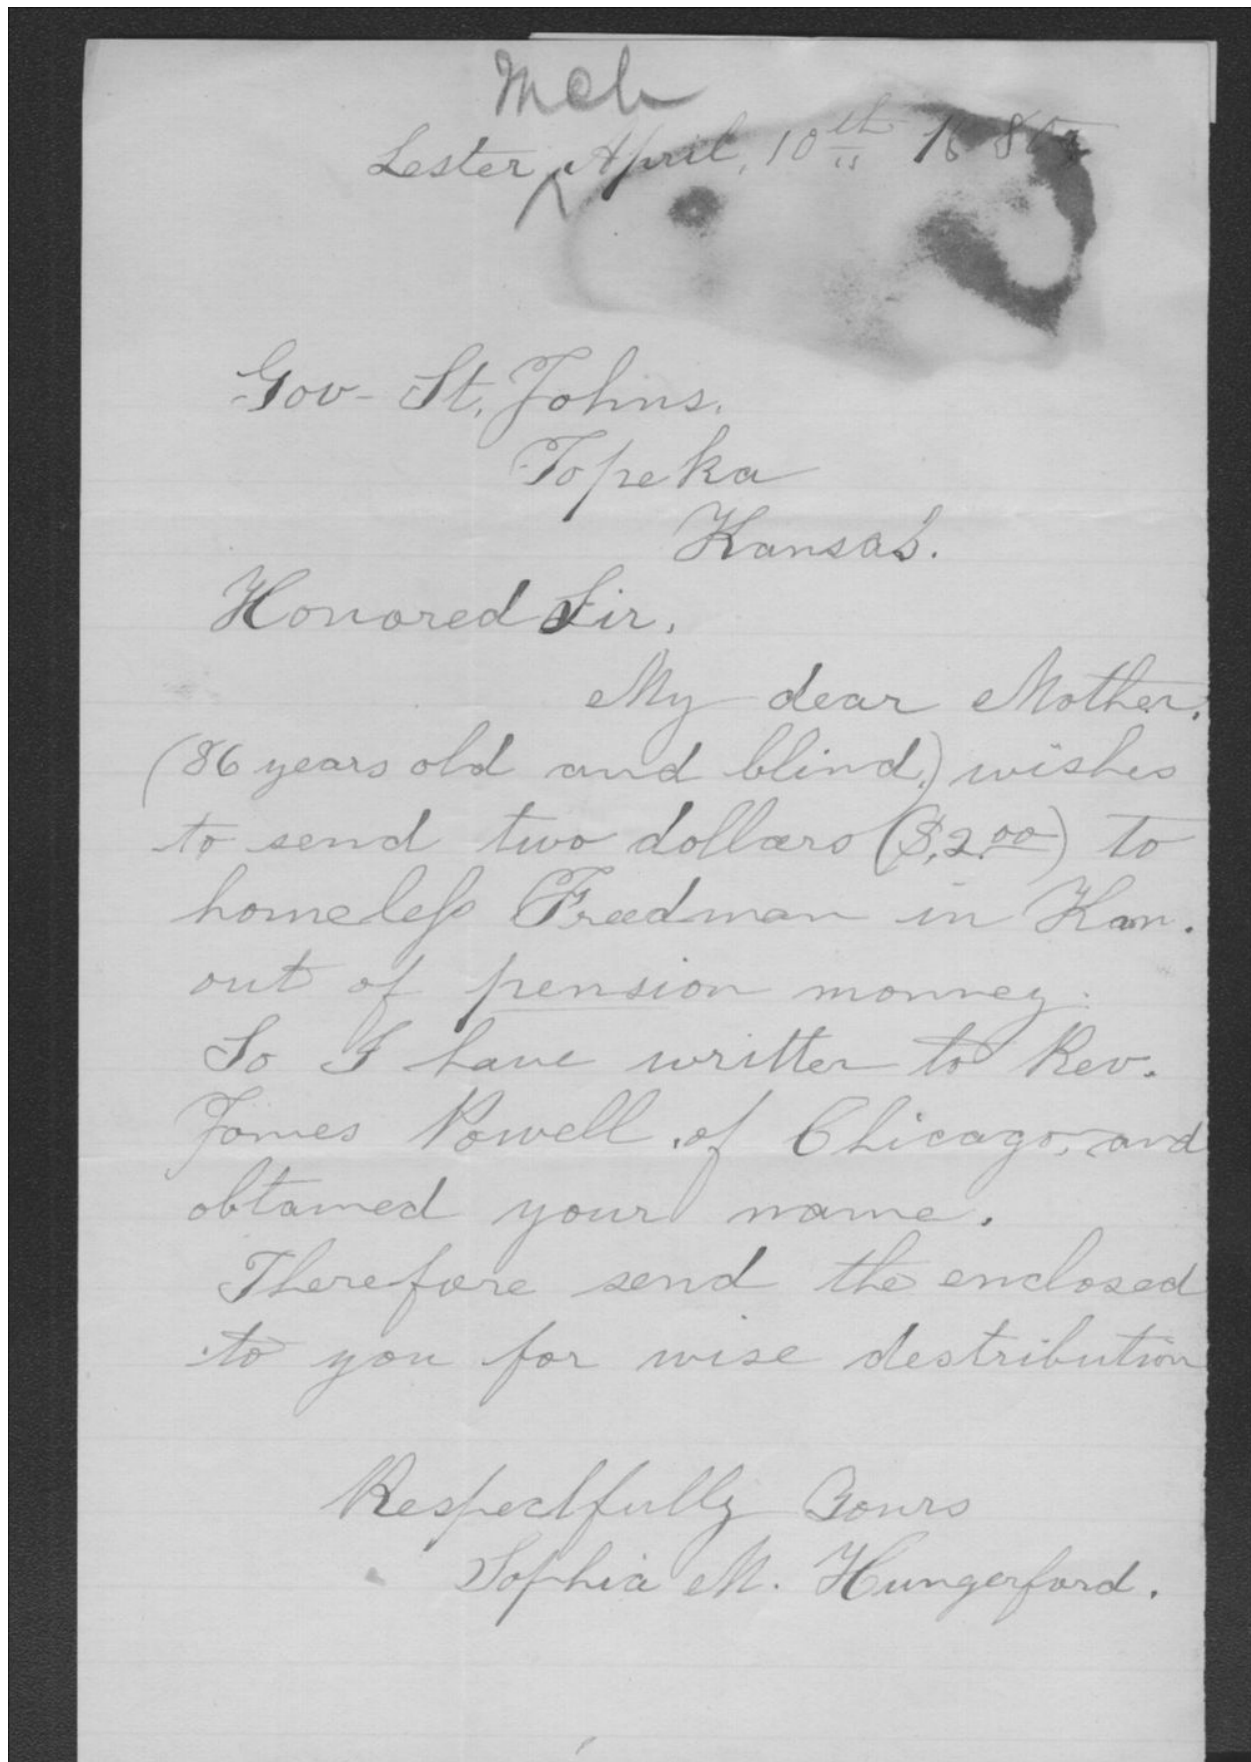 Mch
Lester, April, 10th 1880
Gov- St. Johns.
Topeka
Kansas.
Honored Sir,
My dear Mother.
(86 years old and blind,) wishes
to send two dollars ($.2.00) to
homeless Freedman in Kan.
out of pension monney.
So I have written to Rev.
James Powell, of Chicago, and
obtained your name.
Therefore send the enclosed
to you for wise destribution
Respectfully Yours
Sophia M. Hungerford.